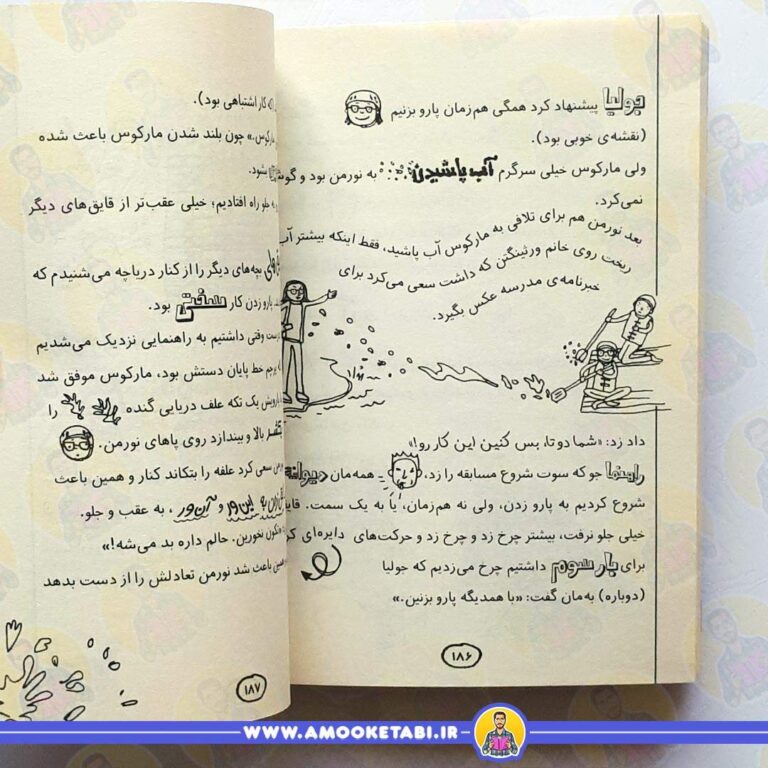 جولیا پیشنهاد کرد همگی هم‌زمان پارو بزنیم
(نقشه‌ی خوبی بود).
ولی مارکوس خیلی سرگرم آب پاشیدن به نورمن بود و گوش
نمی‌کرد.
بعد نورمن هم برای تلافی به مارکوس آب پاشید، فقط اینکه بیشتر آب
ریخت روی خانم ورثینگتن که داشت سعی می‌کرد برای
خبرنامه‌ی مدرسه عکس بگیرد.
داد زد: «شما دو تا، بس کنین این کار رو!»
راهنما جو که سوت شروع مسابقه را زد، همه‌مان دیوانه
شروع کردیم به پارو زدن، ولی نه هم‌زمان، یا به یک سمت. قایق
خیلی جلو نرفت، بیشتر چرخ زد و چرخ زد و حرکت‌های دایره‌ای
برای بار سوم داشتیم چرخ می‌زدیم که جولیا
(دوباره) به‌مان گفت: «با همدیگه پارو بزنین.»
۱۸۶
که کار اشتباهی بود).
مارکوس.» چون بلند شدن مارکوس باعث شده
بشود.
به جلو راه افتادیم؛ خیلی عقب‌تر از قایق‌های دیگر
بچه‌های دیگر را از کنار دریاچه می‌شنیدم که
پارو زدن کار سفتی بود.
درست وقتی داشتیم به راهنمایی نزدیک می‌شدیم
پرچم خط پایان دستش بود، مارکوس موفق شد
پارویش یک تکه علف دریایی گنده را
بالا و بیندازد روی پاهای نورمن.
سعی کرد علفه را بتکاند کنار و همین باعث
این‌ور و آن‌ور، به عقب و جلو.
تکون نخورین. حالم داره بد می‌شه!»
همین باعث شد نورمن تعادلش را از دست بدهد
۱۸۷
WWW.AMOOKETABI.IR